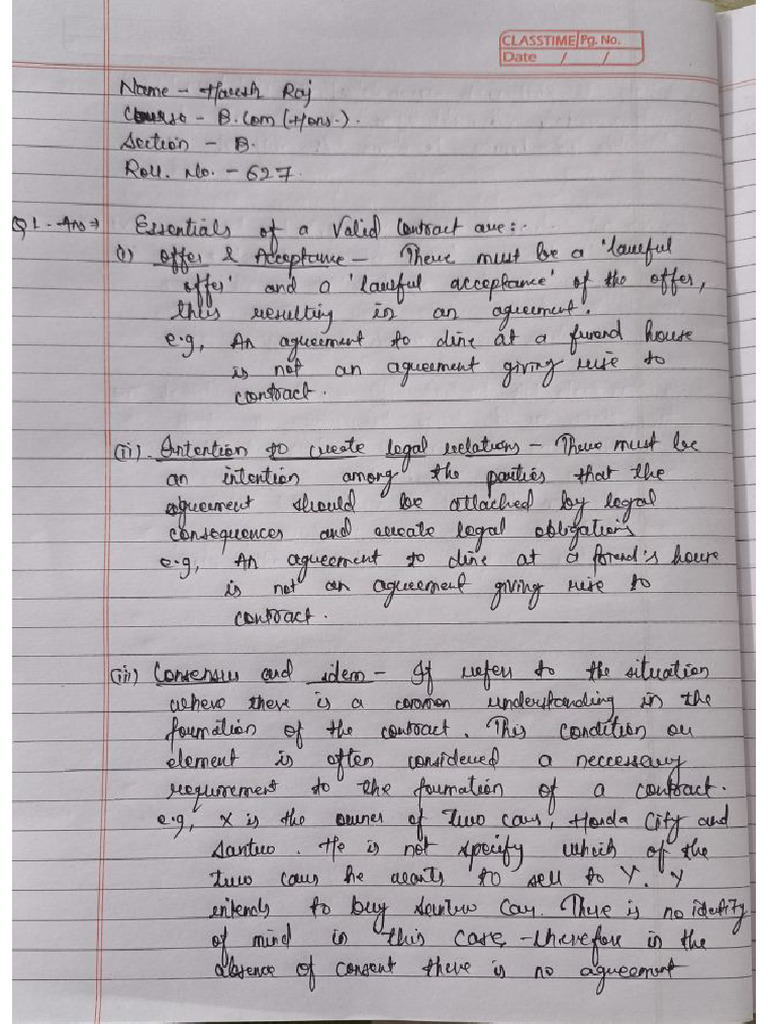 CLASSTIME Pg. No.
Date / /
Name - Haresh Raj
Course - B.Com (Hons.).
Section - B.
Roll. No. - 627.
Q1. Ans → Essentials of a Valid Contract are:-
(i) Offer & Acceptance - There must be a 'lawful
offer' and a 'lawful acceptance' of the offer,
this resulting in an agreement.
e.g, An agreement to dine at a friend house
is not an agreement giving rise to
contract.
(ii). Intention to create legal relations - There must be
an intention among the parties that the
agreement should be attached by legal
consequences and create legal obligations
e.g, An agreement to dine at a friend's house
is not an agreement giving rise to
contract.
(iii) Consensus and idem - It refers to the situation
where there is a common understanding in the
formation of the contract. This condition or
element is often considered a neccessary
requirement to the formation of a contract.
e.g, X is the owner of two cars, Honda City and
Santro. He is not specify which of the
two cars he wants to sell to Y. Y
intends to buy Santro Car. There is no identity
of mind in this case, therefore in the
absence of consent there is no agreement